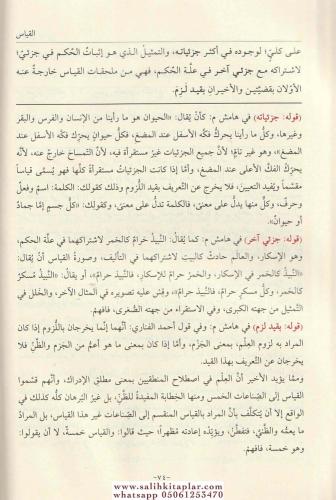 القياس
على كليٍّ؛ لوجوده في أكثر جزئياته، والتمثيل الذي هو إثباتُ الحُكم في جزئيٍّ؛
لاشتراكه مع جزئي آخر في علّة الحكم، فهي من ملحقات القياس خارجة عنه
الأوّلان بقضيّتين والأخيران بقيد لَزِمَ.
(قوله: جزئياته) في هامش م: كأنْ يُقال: «الحيوان هو ما رأينا من الإنسان والفرس والبقر
وغيرها، وكلُّ ما رأينا يحركُ فكّه الأسفل عند المضغ، فكلُّ حيوانٍ يحرّك فكّه الأسفل عند
المضغ»، وهو غير تامٍّ؛ لأنَّ جميع الجزئيات غيرُ مستقرأة فيه، لأنَّ التّمساح خارجٌ عنه، لأنّه
يحركُ الفكَّ الأعلى عند المضغ، وأمّا إذا كانت الجزئياتُ مستقرأة كلّها فهو يُسمّى قياساً
مقسّماً ويُفيد التعيين، فلا يخرج عن التّعريف بقيد اللُّزوم وذلك كقولك: الكلمة: اسمٌ وفعلٌ
وحرفٌ، وكلٌّ منها يدلُّ على معنىً، فالكلمة تدلُّ على معنىً، وكقولك: «كلُّ جسمٍ إمّا جمادٌ
أو حيوانٌ».
(قوله: جزئي آخر) في هامش م: كما يُقال: النَّبيذُ حرامٌ كالخمر لاشتراكهما في علّة الحكم،
وهو الإسكار، والعالم حادثٌ كالبيت لاشتراكهما في التأليف، وصورةُ القياس أنْ يُقال:
«النَّبيذُ كالخمر في الإسكار، والخمرُ حرامٌ للإسكار، فالنَّبيذُ حرامٌ»، أو يقال: «النَّبيذُ مُسكرٌ
كالخمر، وكلُّ مسكرٍ حرامٌ، فالنّبيذُ حرامٌ»، وقِسْ عليه تصويره في المثال الآخر، والخلل في
التّمثيل من جهته الكبرى، وفي الاستقراء من جهة الصُّغرى، فافهم.
(قوله: بقيد لزم) في هامش م: وفي قول أحمد الفناري: أنّهما إنّما يخرجان باللُّزوم إذا كان
المراد به لزوم العِلْمِ، بمعنى الجزم، وأمّا إذا كان بمعنى ما هو أعمُّ من الجَزم والظّنِّ فلا
يخرجان عن التّعريف بهذا القيد.
وممّا يؤيد الأخير أنَّ العِلْم في اصطلاح المنطقيين بمعنى مطلق الإدراك، وأنّهم قسّموا
القياس إلى الصِّناعات الخمس ومنها الخِطابة المفيدةُ للظّنِّ، بل غيرُ البرهان كلُّه كذلك في
الواقع إلا أنْ يُتكلَّف بأنَّ المراد بالقياس المنقسم إلى الصِّناعات غير هذا القياس، بل المرادُ
ما يعمُّه والظّنّيَّ، فتفطَّن، ويؤيِّده إعادته مُظهراً؛ حيث قالوا: والقياس خمسةٌ، لا أن يقولوا:
وهو خمسة، فافهم.
-٧٤-
www.salihkitaplar.com
whatsapp 05061253470